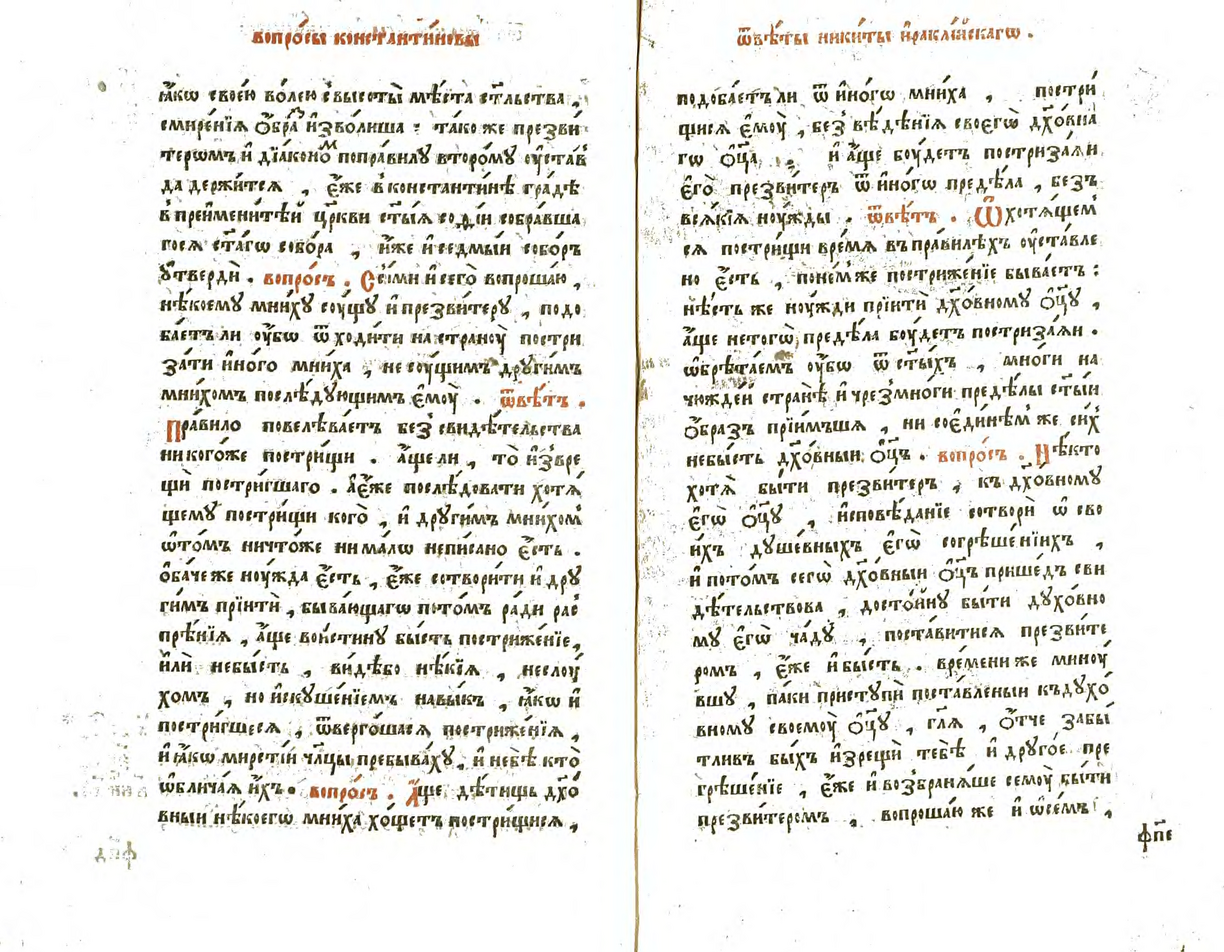 вопро́сы конста́нти́новы
ꙗ҆́кѡ свое́ю во́лею с̾высоты̀ мѣ́ста ст҃льства ,
смире́нїѧ ѻ҆́бра и҆зво́лиша : тако́же презви́
терѡмъ и҆ дїа́коно поправилꙋ второ́мꙋ ᲂу҆ста́в
да держи́тсѧ , є҆́же в̾константи́нѣ гра́дѣ
в̾преимени́тѣй цр҃кви ст҃ы́ѧ софі́и собра́вша
госѧ ст҃а́гѡ собо́ра , и҆́же и҆ седмы́и собо́ръ
ᲂу҆твердѝ . вопро́съ . Си́ми и҆ сего̀ вопроша́ю ,
нѣ́коемꙋ мни́хꙋ сꙋ́щꙋ и҆ презви́терꙋ , подо
ба́етъ ли ᲂу҆́бо ѿходи́ти на странꙋ̀ постри
за́ти и҆но́го мни́ха , не сꙋ́щимъ дрꙋги́мъ
мни́хомъ послѣ́дꙋющимъ є҆мꙋ̀ . ѿвѣ́тъ .
Пра́вило повелѣва́етъ без̾ свидѣ́тельства
никого́же постри́щи . а҆́ще ли , то̀ и҆зве
щѝ постри́гшаго . А҆є҆́же послѣ́довати хотѧ́
щемꙋ постри́щи кого̀ , и҆ дрꙋги́мъ мни́хом
ѡ҆то́мъ ничто́же ни ма́лѡ непи́сано є҆́сть .
ѻ҆ба́че же нꙋ́жда є҆́сть , є҆́же сотвори́ти и҆ дрꙋ
ги́мъ прїитѝ , быва́ющагѡ пото́мъ ра́ди рас
прѣ́нїѧ , а҆́ще вои́стинꙋ бы́сть постриже́нїе ,
и҆лѝ небы́сть , ви́дѣ бо нѣ́кїѧ , неслꙋ́
хомъ , но и҆скꙋше́нїемъ навы́къ , ꙗ҆́кѡ и҆
постри́гшесѧ , ѿверго́шасѧ постриже́нїѧ ,
и҆ ꙗ҆́кѡ мирстї́и чл҃цы пребыва́хꙋ , и҆ небѣ̀ кто̀
ѡ҆блича́ѧ и҆́хъ . вопро́съ . А҆́ще дѣ́тищь дх҃о́
вныи нѣ́коегѡ мни́ха хо́щетъ постри́щисѧ ,
фп҃д
ѿвѣ́ты ники́ты и҆ракли́йскагѡ .
подоба́етъ ли ѿ и҆но́гѡ мни́ха , постри́
щисѧ є҆мꙋ̀ , без̾ вѣ́дѣнїѧ своегѡ̀ дх҃о́вна
гѡ ѻ҆ц҃а̀ . и҆ а҆́ще бꙋ́детъ постриза́ѧи
є҆го̀ презви́теръ ѿ и҆но́гѡ предѣ́ла , безъ
всѧ́кїѧ нꙋ́жды . ѿвѣ́тъ . Ѿхотѧ́щем
сѧ постри́щи вре́мѧ въ пра́вилѣхъ ᲂу҆ста́вле
но є҆́сть , понем̾же постриже́нїе быва́етъ :
нѣ́сть же нꙋ́жди прїитѝ дх҃о́вномꙋ ѻ҆ц҃ꙋ̀ ,
а҆́ще нетогѡ̀ предѣ́ла бꙋ́детъ постриза́ѧи .
ѡ҆брѣта́емъ ᲂу҆́бо ѿ ст҃ы́хъ , мно́ги на
чю́ждей странѣ̀ и҆ чрез̾ мно́ги предѣ́лы ст҃ы́и
ѻ҆́бразъ прїи́мъшѧ , ни со є҆ди́нѣм же си́х
небы́сть дх҃о́вныи ѻ҆ц҃ъ . вопро́съ . Нѣ́кто
хотѧ̀ бы́ти презви́теръ , къ дх҃о́вномꙋ
є҆гѡ̀ ѻ҆ц҃ꙋ̀ , и҆сповѣ́данїе сотворѝ ѡ҆ сво
и҆́хъ дꙋше́вныхъ є҆гѡ̀ согрѣше́нїихъ ,
и҆ пото́мъ сегѡ̀ дх҃о́вныи ѻ҆ц҃ъ прише́дъ сви
дѣ́тельствова , досто́йнꙋ бы́ти дꙋхо́вно
мꙋ є҆гѡ̀ ча́дꙋ , поста́витисѧ презви́те
ромъ , є҆́же и҆ бы́сть . вре́мени же минꙋ́
вшꙋ , па́ки пристꙋпѝ поста́вленыи къ дꙋхо́
вномꙋ своемꙋ̀ ѻ҆ц҃ꙋ̀ , гл҃ѧ , ѻ҆́тче забы́
тливъ бы́хъ и҆зрещѝ тебѣ̀ и҆ дрꙋго́е пре
грѣше́нїе , є҆́же и҆ воз̾бранѧ́ше семꙋ̀ бы́ти
презви́теромъ , вопроша́ю же и҆ ѡ҆се́мъ ,
фп҃е